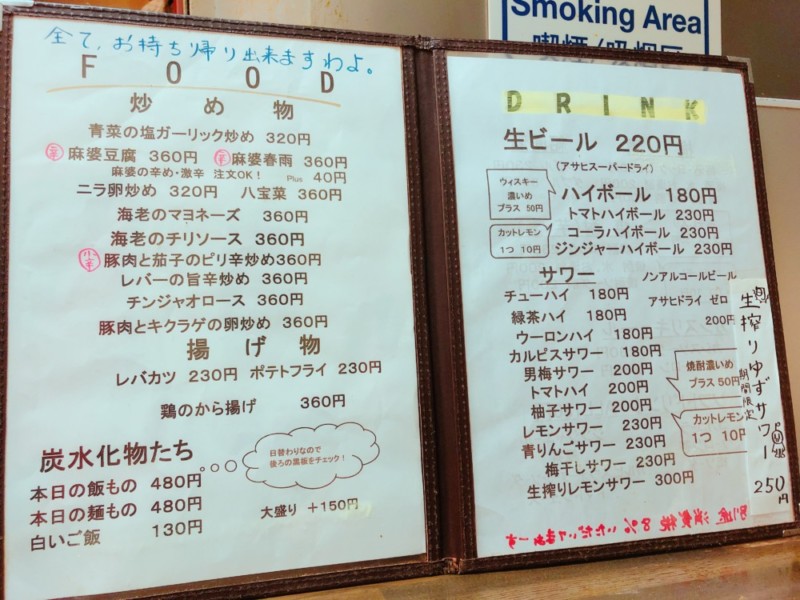 Smoking Area
全て、お持ち帰り出来ますわよ。
FOOD
炒め物
青菜の塩ガーリック炒め 320円
辛 麻婆豆腐 360円 辛 麻婆春雨 360円
麻婆の辛め・激辛 注文OK! Plus 40円
ニラ卵炒め 320円 八宝菜 360円
海老のマヨネーズ 360円
海老のチリソース 360円
小辛 豚肉と茄子のピリ辛炒め360円
レバーの旨辛炒め 360円
チンジャオロース 360円
豚肉とキクラゲの卵炒め 360円
揚げ物
レバカツ 230円 ポテトフライ 230円
鶏のから揚げ 360円
炭水化物たち
日替わりなので
後ろの黒板をチェック!
本日の飯もの 480円
本日の麺もの 480円 大盛り +150円
白いご飯 130円
DRINK
生ビール 220円
(アサヒスーパードライ)
ウィスキー
濃いめ
プラス 50円
ハイボール 180円
トマトハイボール 230円
カットレモン
1つ 10円
コーラハイボール 230円
ジンジャーハイボール 230円
サワー
チューハイ 180円
緑茶ハイ 180円
ウーロンハイ 180円
カルピスサワー 180円
男梅サワー 200円
トマトハイ 200円
柚子サワー 200円
レモンサワー 230円
青りんごサワー 230円
梅干しサワー 230円
生搾りレモンサワー 300円
ノンアルコールビール
アサヒドライ ゼロ
200円
焼酎濃いめ
プラス 50円
カットレモン
1つ 10円
生搾りゆずサワー
期間限定
250円
別途 消費税 8%いただいてまぁーす